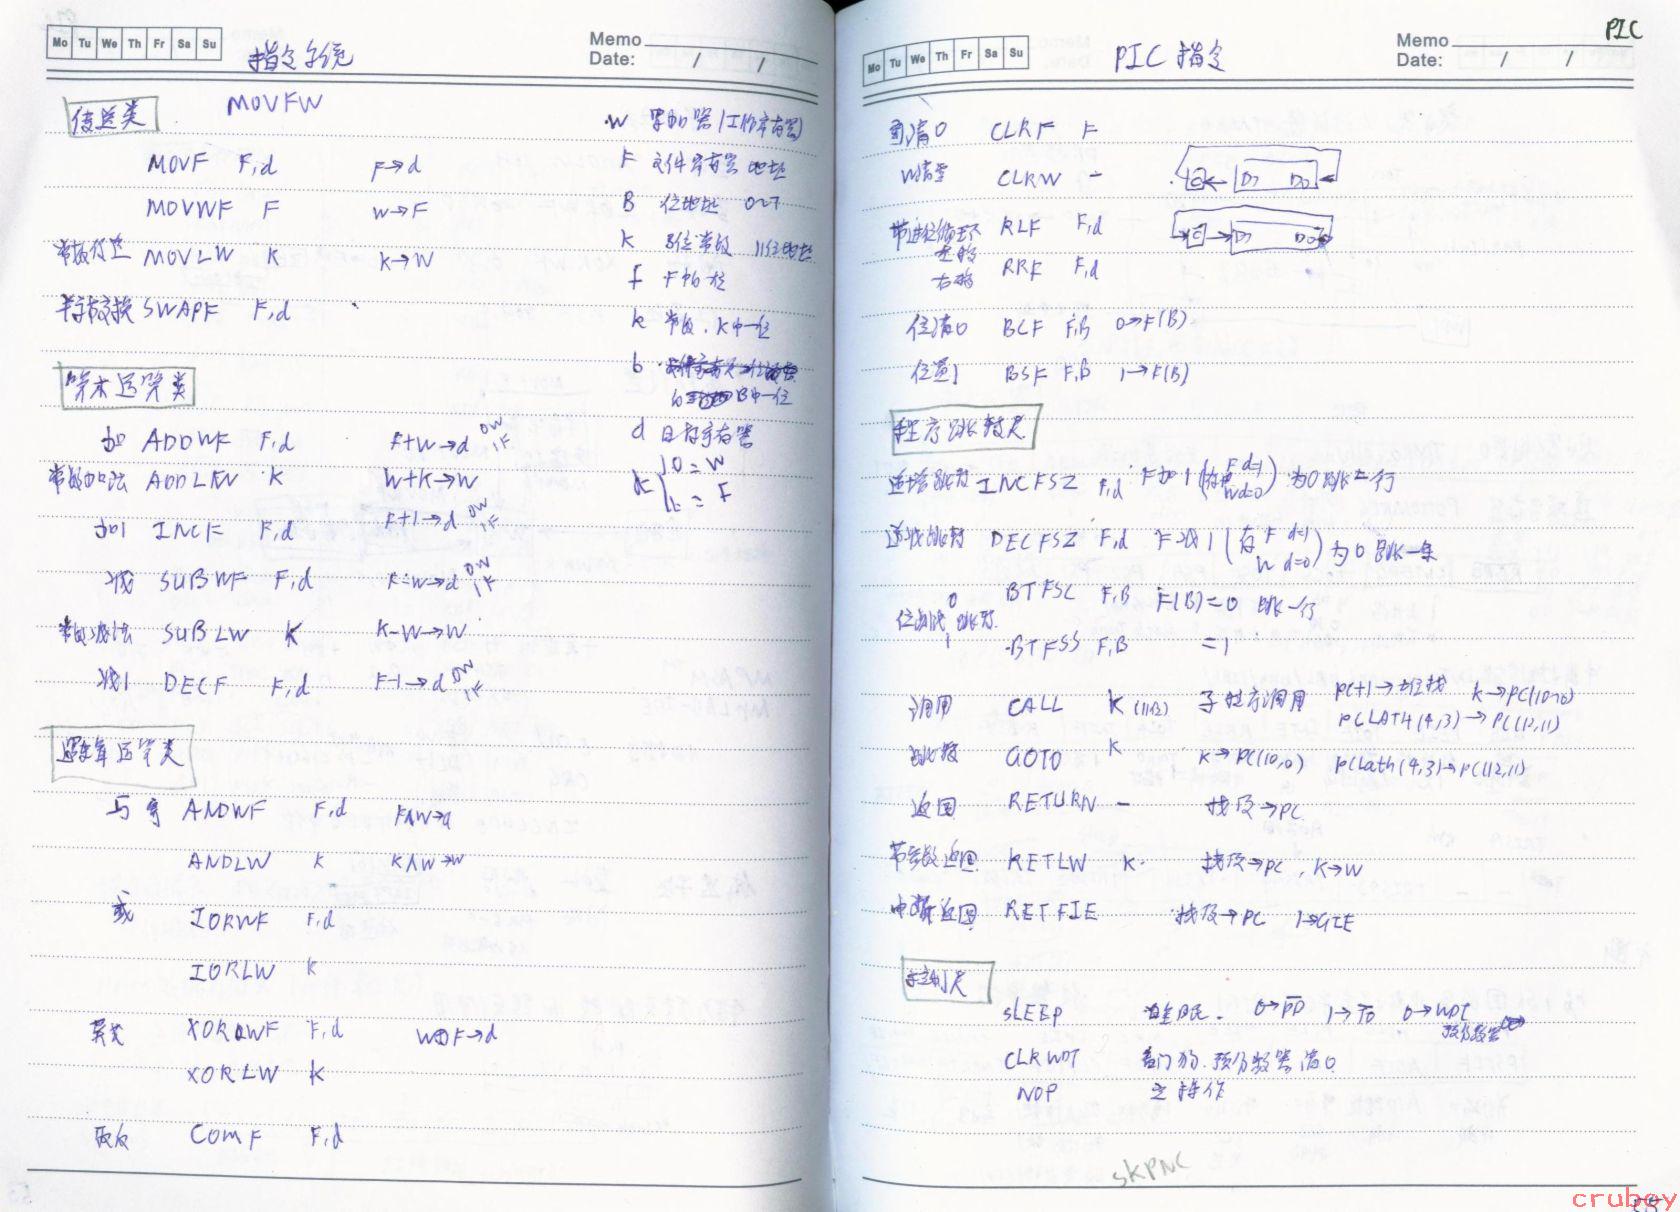 Mo Tu We Th Fr Sa Su
指令系统
Memo
Date: / /
传送类
MOVFW
MOVF F,d F→d
MOVWF F W→F
常数传送 MOVLW K K→W
半字节交换 SWAPF F,d
W 累加器(工作寄存器)
F 文件寄存器 地址
B 位地址 0~7
K 8位常数 11位地址
f F中位
k 常数,K中一位
b
B中一位
d 目标寄存器
0 = W
1 = F
算术运算类
加 ADDWF F,d F+W→d 0W 1F
常数加法 K W+K→W
加1 INCF F,d F+1→d 0W 1F
减 SUBWF F,d F-W→d 0W 1F
常数减法 SUBLW K K-W→W
减1 DECF F,d F-1→d 0W 1F
逻辑运算类
与 ANDWF F,d F∧W→d
ANDLW K K∧W→W
或 IORWF F,d
IORLW K
异或 XORWF F,d W⊕F→d
XORLW K
取反 COMF F,d
PIC
Mo Tu We Th Fr Sa Su
PIC 指令
Memo
Date: / /
清0 CLRF F
W清零 CLRW -
C ← D7 D0
带进位循环 RLF F,d
左移
→ C → D7 D0
右移 RRF F,d
位清0 BCF F,B 0→F(B)
位置1 BSF F,B 1→F(B)
程序跳转类
递增跳转 INCFSZ F,d F加1 (存 F d=1 W d=0) 为0跳一行
递减跳转 DECFSZ F,d F减1 (存 F d=1 W d=0) 为0跳一条
BTFSC F,B F(B)=0 跳一行
位测试 0 1 跳转
BTFSS F,B =1
调用 CALL K (11位) 子程序调用 PC+1→堆栈 K→PC(10-0)
PCLATH(4,3)→PC(12,11)
跳转 GOTO K K→PC(10,0) PCLath(4,3)→PC(12,11)
返回 RETURN - 栈顶→PC
带参数返回 RETLW K 栈顶→PC, K→W
中断返回 RETFIE 栈顶→PC 1→GIE
控制类
SLEEP 睡眠. 0→PD 1→TO 0→WDT
预分频器
CLRWDT 看门狗.预分频器清0
NOP 空操作
SKPNC
cruboy